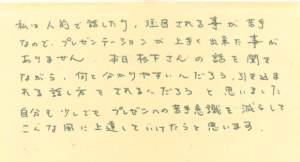 私は人前で話したり、注目される事が苦手
なので、プレゼンテーションが上手く出来た事が
ありません。本日松下さんの話を聞き
ながら、何と分かりやすいんだろう、引き込ま
れる話し方をされるんだろうと思いました。
自分も少しでもプレゼンへの苦手意識を減らして
こんな風に上達していけたらと思います。